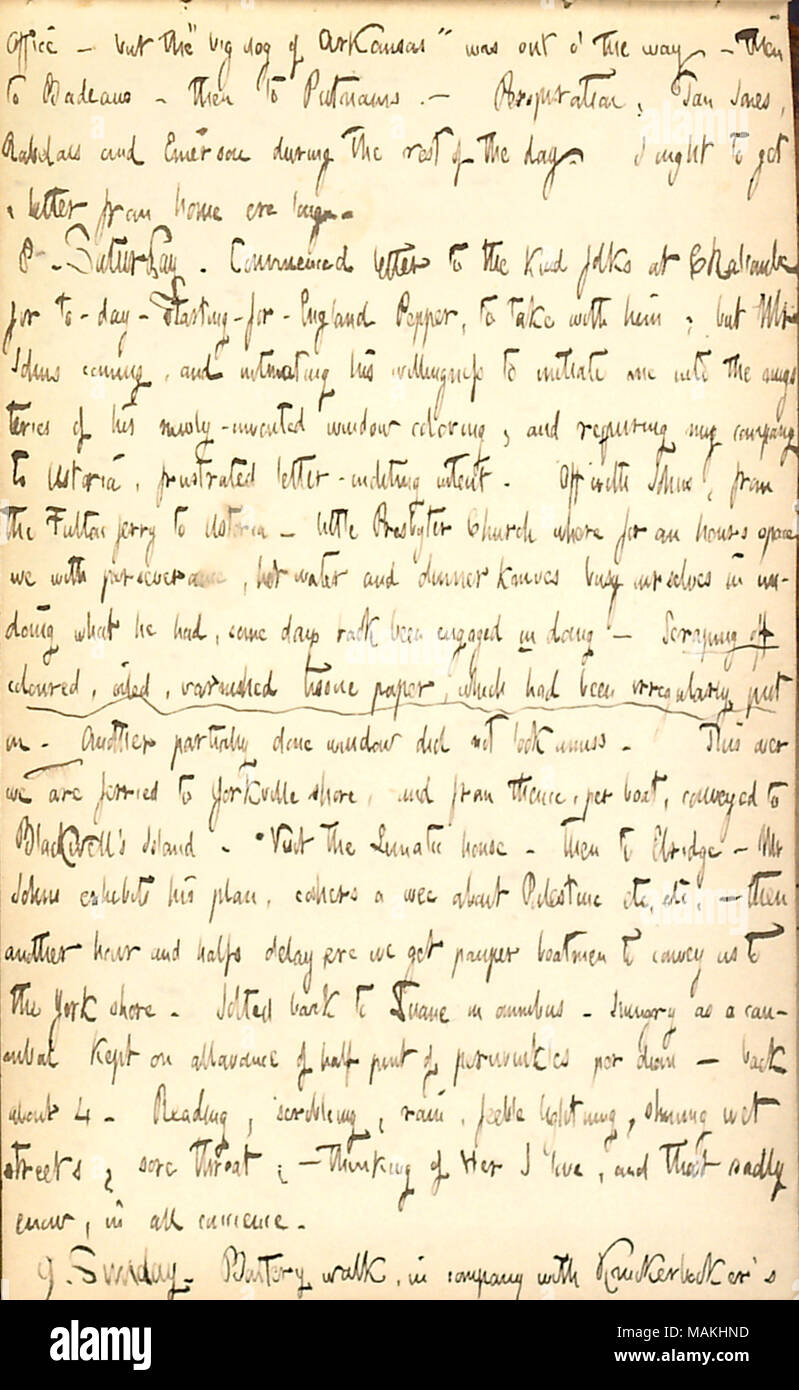 Office – but the "big dog of Arkansas" was out o' the way – then
to Badeaus – then to Putnams. – Perspiration, Tom Jones,
Rabelais and Emerson during the rest of the day. I ought to get
a letter from home ere long.
8 – Saturday. Commenced letter to the kind folks at Chacombe
for to-day-starting-for-England Pepper, to take with him; but Mr
Johns coming, and intimating his willingness to initiate me into the mys
teries of his newly-invented window coloring, and requiring my company
to Astoria, frustrated letter-inditing intent. Off with Johns, from
the Fulton ferry to Astoria – little Presbyter Church where for an hours space
we with perseverance, hot water and dinner knives busy ourselves in un-
doing what he had, some days back been engaged in doing – Scraping off
coloured, oiled, varnished tissue paper, which had been irregularly put
on. Another partially done window did not look amiss. This over
we are ferried to Yorkville shore, and from thence, per boat, conveyed to
Blackwell's Island – Visit the Lunatic house – then to Elridge – Mr
Johns exhibits his plan, a wee about Palestine etc, etc, – then
another hour and halfs delay ere we get pauper boatmen to convey us to
the York shore. Jolted back to Duane in omnibus – hungry as a can-
nibal kept on allowance of half pint of perewinkles per diem – back
about 4 – Reading, scribbling, rain, feeble lightning, shining wet
streets, sore throat; – thinking of Her I love, and that sadly
enow, in all concience.
9. Sunday. Battery walk, in company with Knickerbocker's
alamy
a
Image ID: MAKHND
www.alamy.com